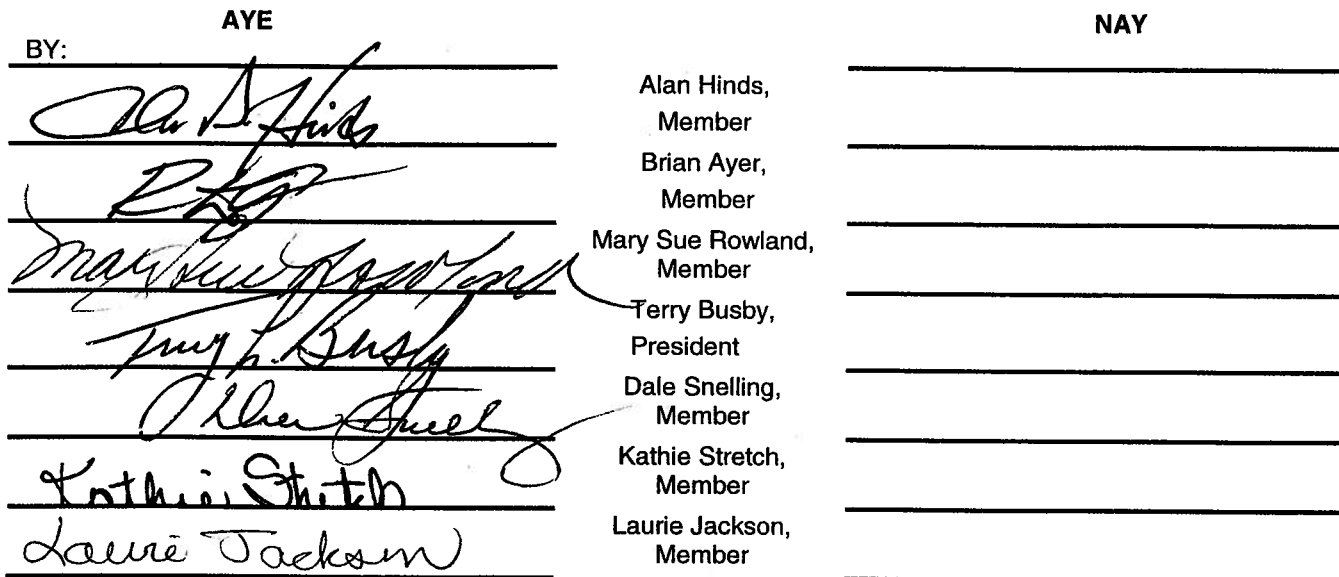 AYE NAY
BY:
Alan D. Hinds Alan Hinds,
Member
Brian Ayer,
Member
Mary Sue Rowland Mary Sue Rowland,
Member
Terry L. Busby Terry Busby,
President
Dale Snelling,
Member
Kathie Stretch Kathie Stretch,
Member
Laurie Jackson Laurie Jackson,
Member